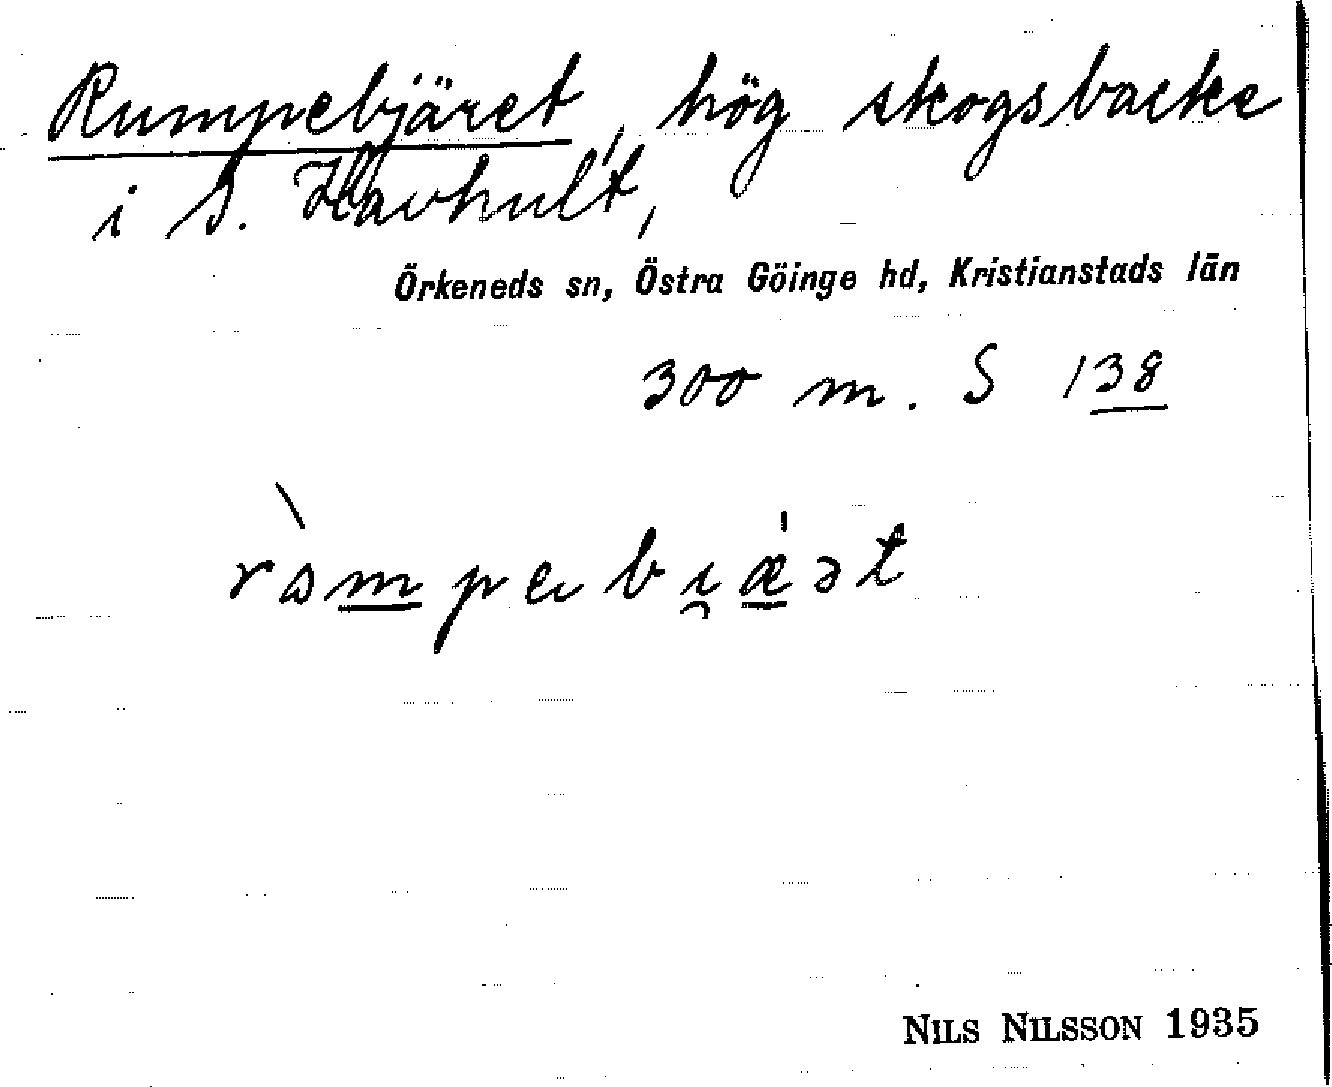 Rumpebjäret, hög skogsbacke
i S. Havhult,
Örkeneds sn, Östra Göinge hd, Kristianstads län
300 m. S 138
NILS NILSSON 1935